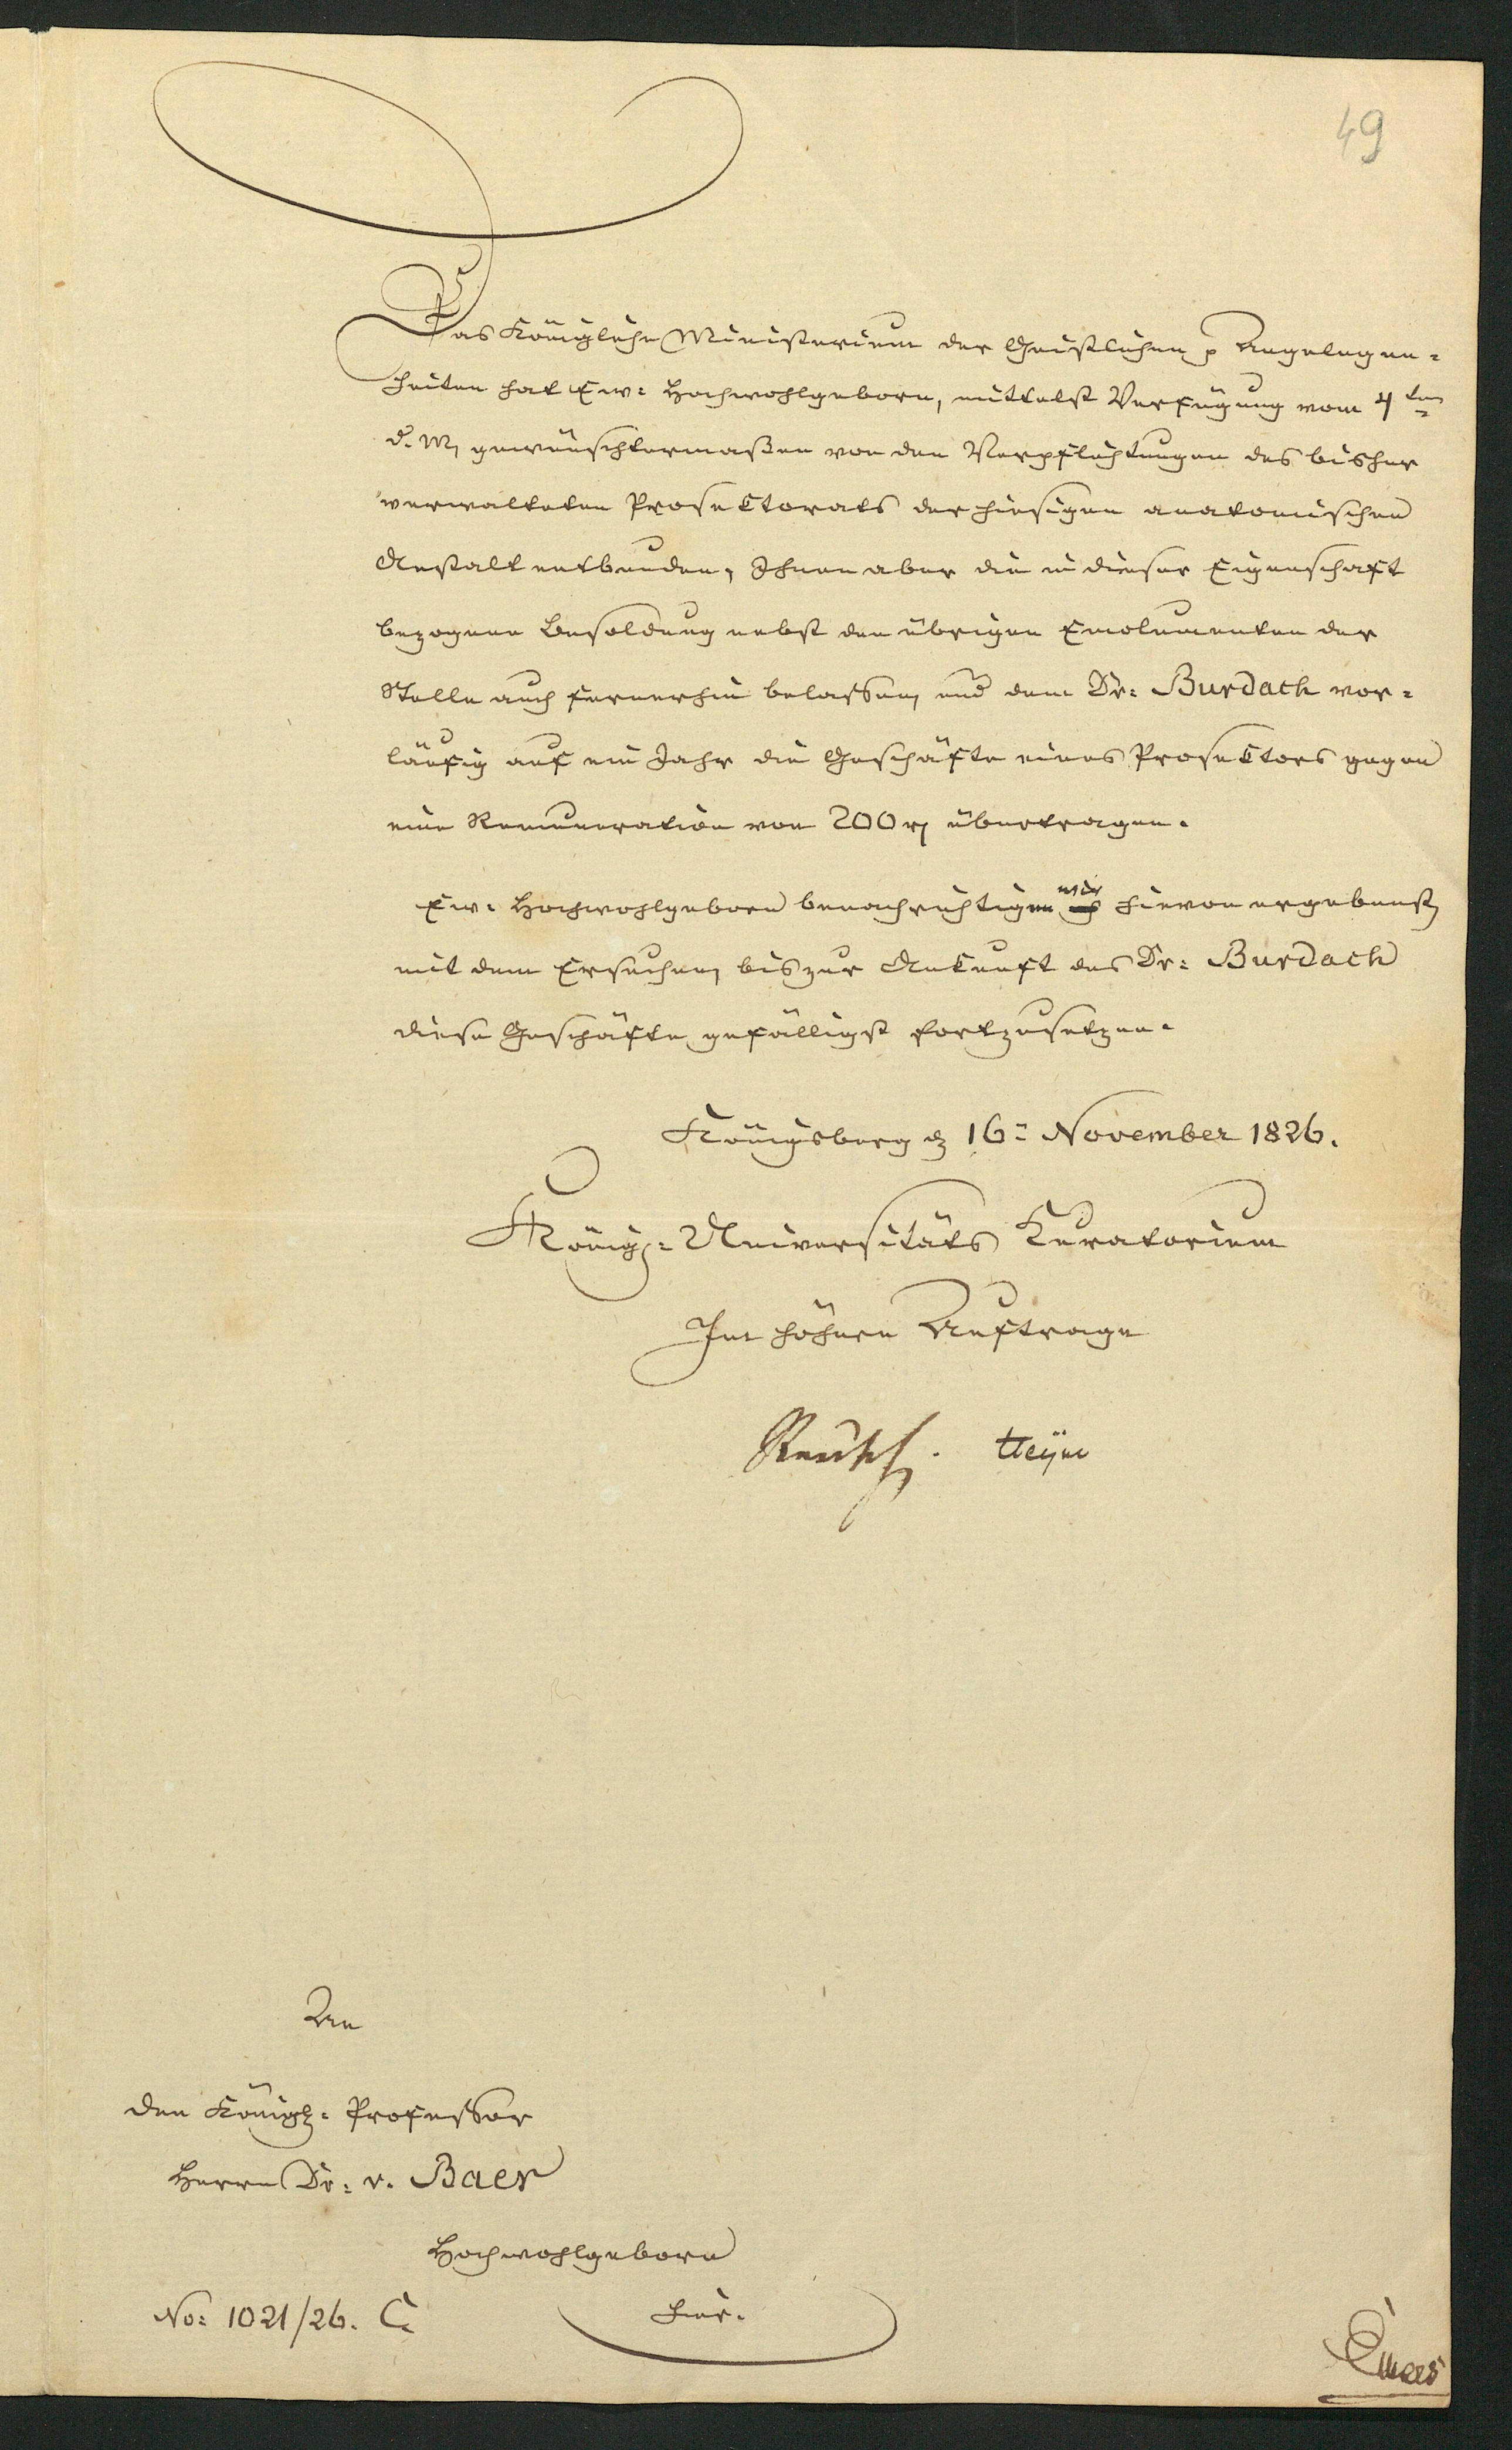 49
Das Königliche Ministerium der Geistlichen p Angelegen=
heiten hat Ew: Hochwohlgeborn, mittelst Verfügung vom 4ten
d. M, gewünschtermaßen von den Verpflichtungen des bisher
verwalteten Prosektorats der hiesigen anatomischen
Anstalt entbunden, Ihnen aber die in dieser Eigenschaft
bezogene Besoldung nebst den übrigen Emolumenten der
Stelle auch fernerhin belassen, und dem Dr: Burdach vor=
läufig auf ein Jahr die Geschäfte eines Prosektors gegen
eine Remuneration von 200 rt übertragen.
Ew: Hochwohlgeborn benachrichtigen wir hievon ergebenst,
mit dem Ersuchen, bis zur Ankunft des Dr: Burdach
diese Geschäfte gefälligst fortzusetzen.
Königsberg d 16: November 1826.
Königl: Universitäts Kuratorium
Im höhern Auftrage
Reusch. Heyne
An
den Königl: Professor
Herrn Dr: v. Baer
Hochwohlgeborn
No: 1021/26. C.
hier.